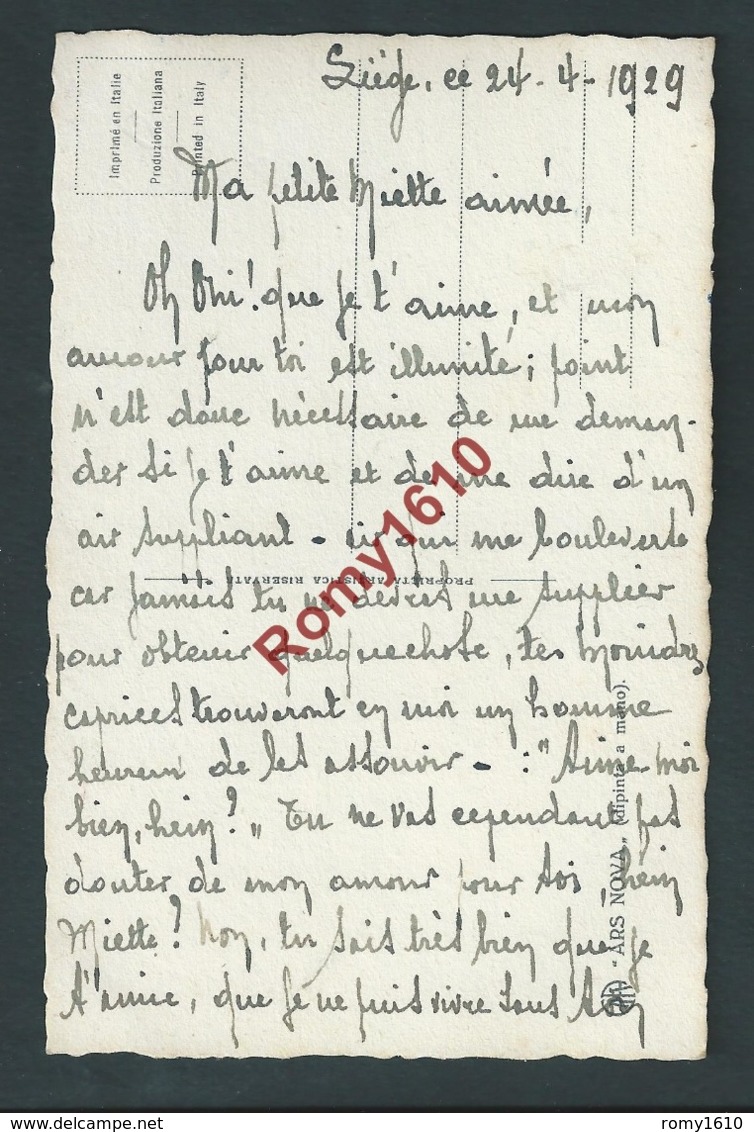 Liège, ce 24-4-1929
Imprimé en Italie
Produzione Italiana
Printed in Italy
Ma petite Miette aimée,
Oh Oui! que je t'aime, et mon
amour pour toi est illimité; point
n'est donc nécessaire de me deman-
der si je t'aime et de me dire d'un
air suppliant - air qui me bouleverse
PROPRIETÀ ARTISTICA RISERVATA
car jamais tu ne devras me supplier
pour obtenir quelquechose, tes moindres
caprices trouveront en moi un homme
heureux de les assouvir - : "Aime moi
bien, hein?" Tu ne vas cependant pas
douter de mon amour pour toi, hein
Miette? Non, tu sais très bien que je
t'aime, que je ne puis vivre sans toi
"ARS NOVA" (dipinta a mano).
Romy1610
romy1610